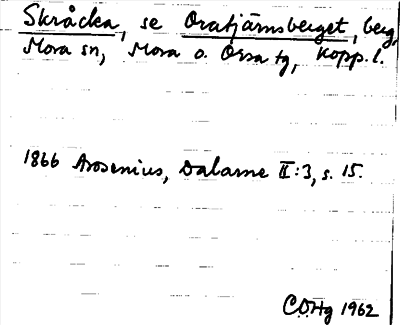 Skråcka, se Oratjärnsberget, berg,
Mora sn, Mora o. Orsa tg, Kopp. l.
1866 Arosenius, Dalarne II:3, s. 15.
COHg 1962